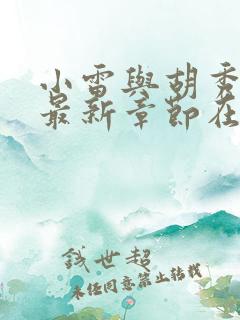 小雷與胡秀
最新章節在
錢世超
未经同意禁止转载